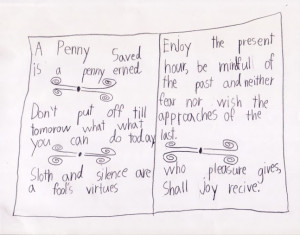 A Penny Saved
is a penny erned.
Don't put off till
tomorow what what
you can do today
Sloth and silence are
a fool's virtues
Enjoy the present
hour, be mindfull of
the past and neither
fear nor wish the
approaches of the
last.
who pleasure gives,
Shall joy recive.